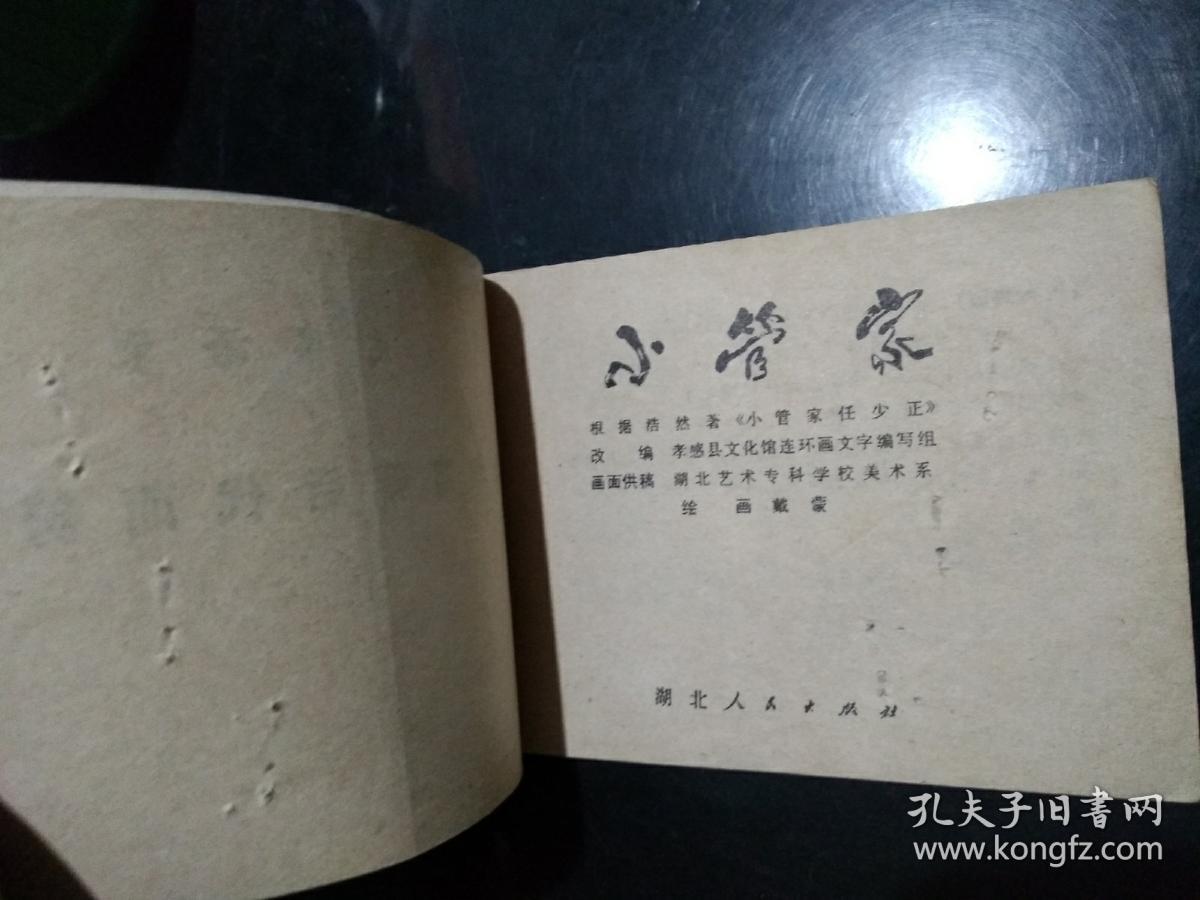 小管家
根据浩然著《小管家任少正》
改编 孝感县文化馆连环画文字编写组
画面供稿 湖北艺术专科学校美术系
绘画戴蒙
湖北人民出版社
孔夫子旧书网
www.kongfz.com